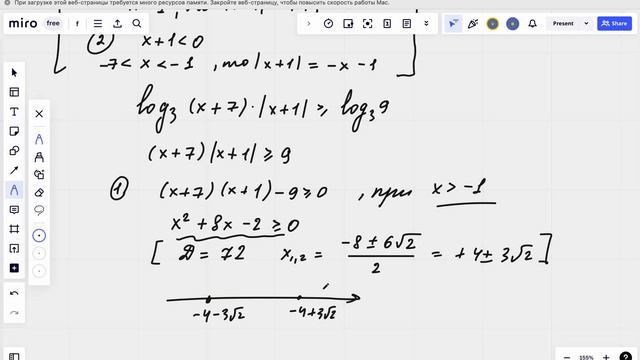 При загрузке этой веб-страницы требуется много ресурсов памяти. Закройте веб-страницу, чтобы повысить скорость работы Mac.
miro free f
Present Share
② x+1<0
-7<x<-1 , то |x+1| = -x-1
log₃ (x+7)·|x+1| ≥ log₃9
(x+7)|x+1| ≥ 9
① (x+7)(x+1)-9≥0 , при x>-1
x² + 8x - 2 ≥ 0
[ D = 72 x₁,₂ = (-8 ± 6√2)/2 = +4 ± 3√2 ]
-4-3√2 -4+3√2
155%